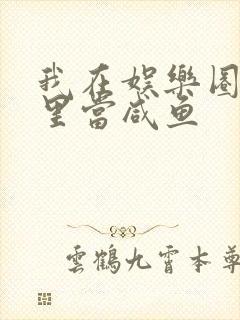 我在娱樂圈
里當咸鱼
雲鶴九霄本尊